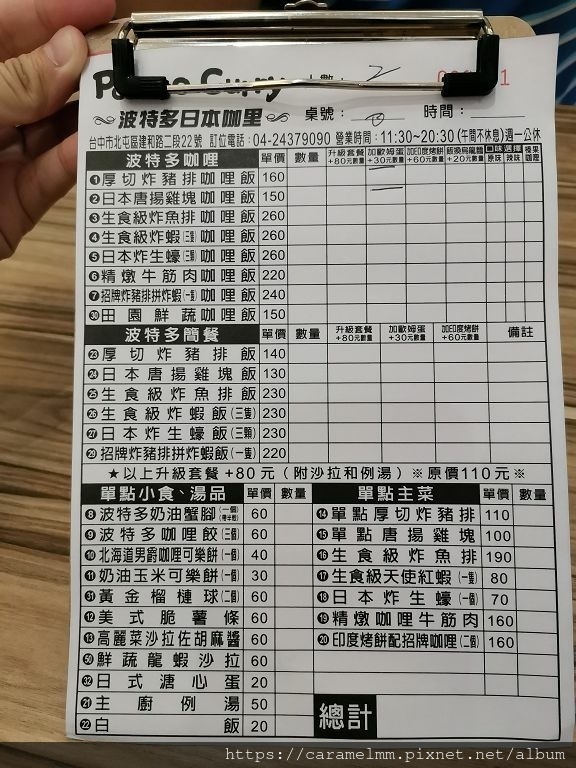 Curry 人數: 2
波特多日本咖哩 桌號: 時間:
台中市北屯區建和路二段22號 訂位電話:04-24379090 營業時間:11:30~20:30(午間不休息)週一公休
波特多咖哩 單價 數量 升級套餐+80元數量 加歐姆蛋+30元數量 加印度烤餅+60元數量 飯換烏龍麵+20元數量 口味選擇 原味 辣味 蘋果咖哩
❶厚切炸豬排咖哩飯 160
❷日本唐揚雞塊咖哩飯 150
❸生食級炸魚排咖哩飯 260
❹生食級炸蝦(三隻)咖哩飯 260
❺日本炸生蠔(三顆)咖哩飯 260
❻精燉牛筋肉咖哩飯 220
❼招牌炸豬排拼炸蝦(一隻)咖哩飯 240
㉚田園鮮蔬咖哩飯 150
波特多簡餐 單價 數量 升級套餐+80元數量 加歐姆蛋+30元數量 加印度烤餅+60元數量 備註
㉓厚切炸豬排飯 140
㉔日本唐揚雞塊飯 130
㉕生食級炸魚排飯 230
㉖生食級炸蝦飯(三隻) 230
㉗日本炸生蠔飯(三顆) 230
㉙招牌炸豬排拼炸蝦飯(一隻) 220
★以上升級套餐+80元(附沙拉和例湯)※原價110元※
單點小食、湯品 單價 數量 單點主菜 單價 數量
❽波特多奶油蟹腳 60 ⓮單點厚切炸豬排 110
❾波特多咖哩餃(三個) 60 ⓯單點唐揚雞塊 100
❿北海道男爵咖哩可樂餅(一個) 40 ⓰生食級炸魚排 190
⓫奶油玉米可樂餅(一個) 30 ⓱生食級天使紅蝦(一隻) 80
㉛黃金榴槤球(二個) 60 ⓲日本炸生蠔(一個) 70
⓬美式脆薯條 60 ⓳精燉咖哩牛筋肉 160
⓭高麗菜沙拉佐胡麻醬 60 ⓴印度烤餅配招牌咖哩(二個) 160
㊿鮮蔬龍蝦沙拉 60
㉜日式溏心蛋 20
㉑主廚例湯 50 總計
㉒白飯 20
https://caramelmm.pixnet.net/album